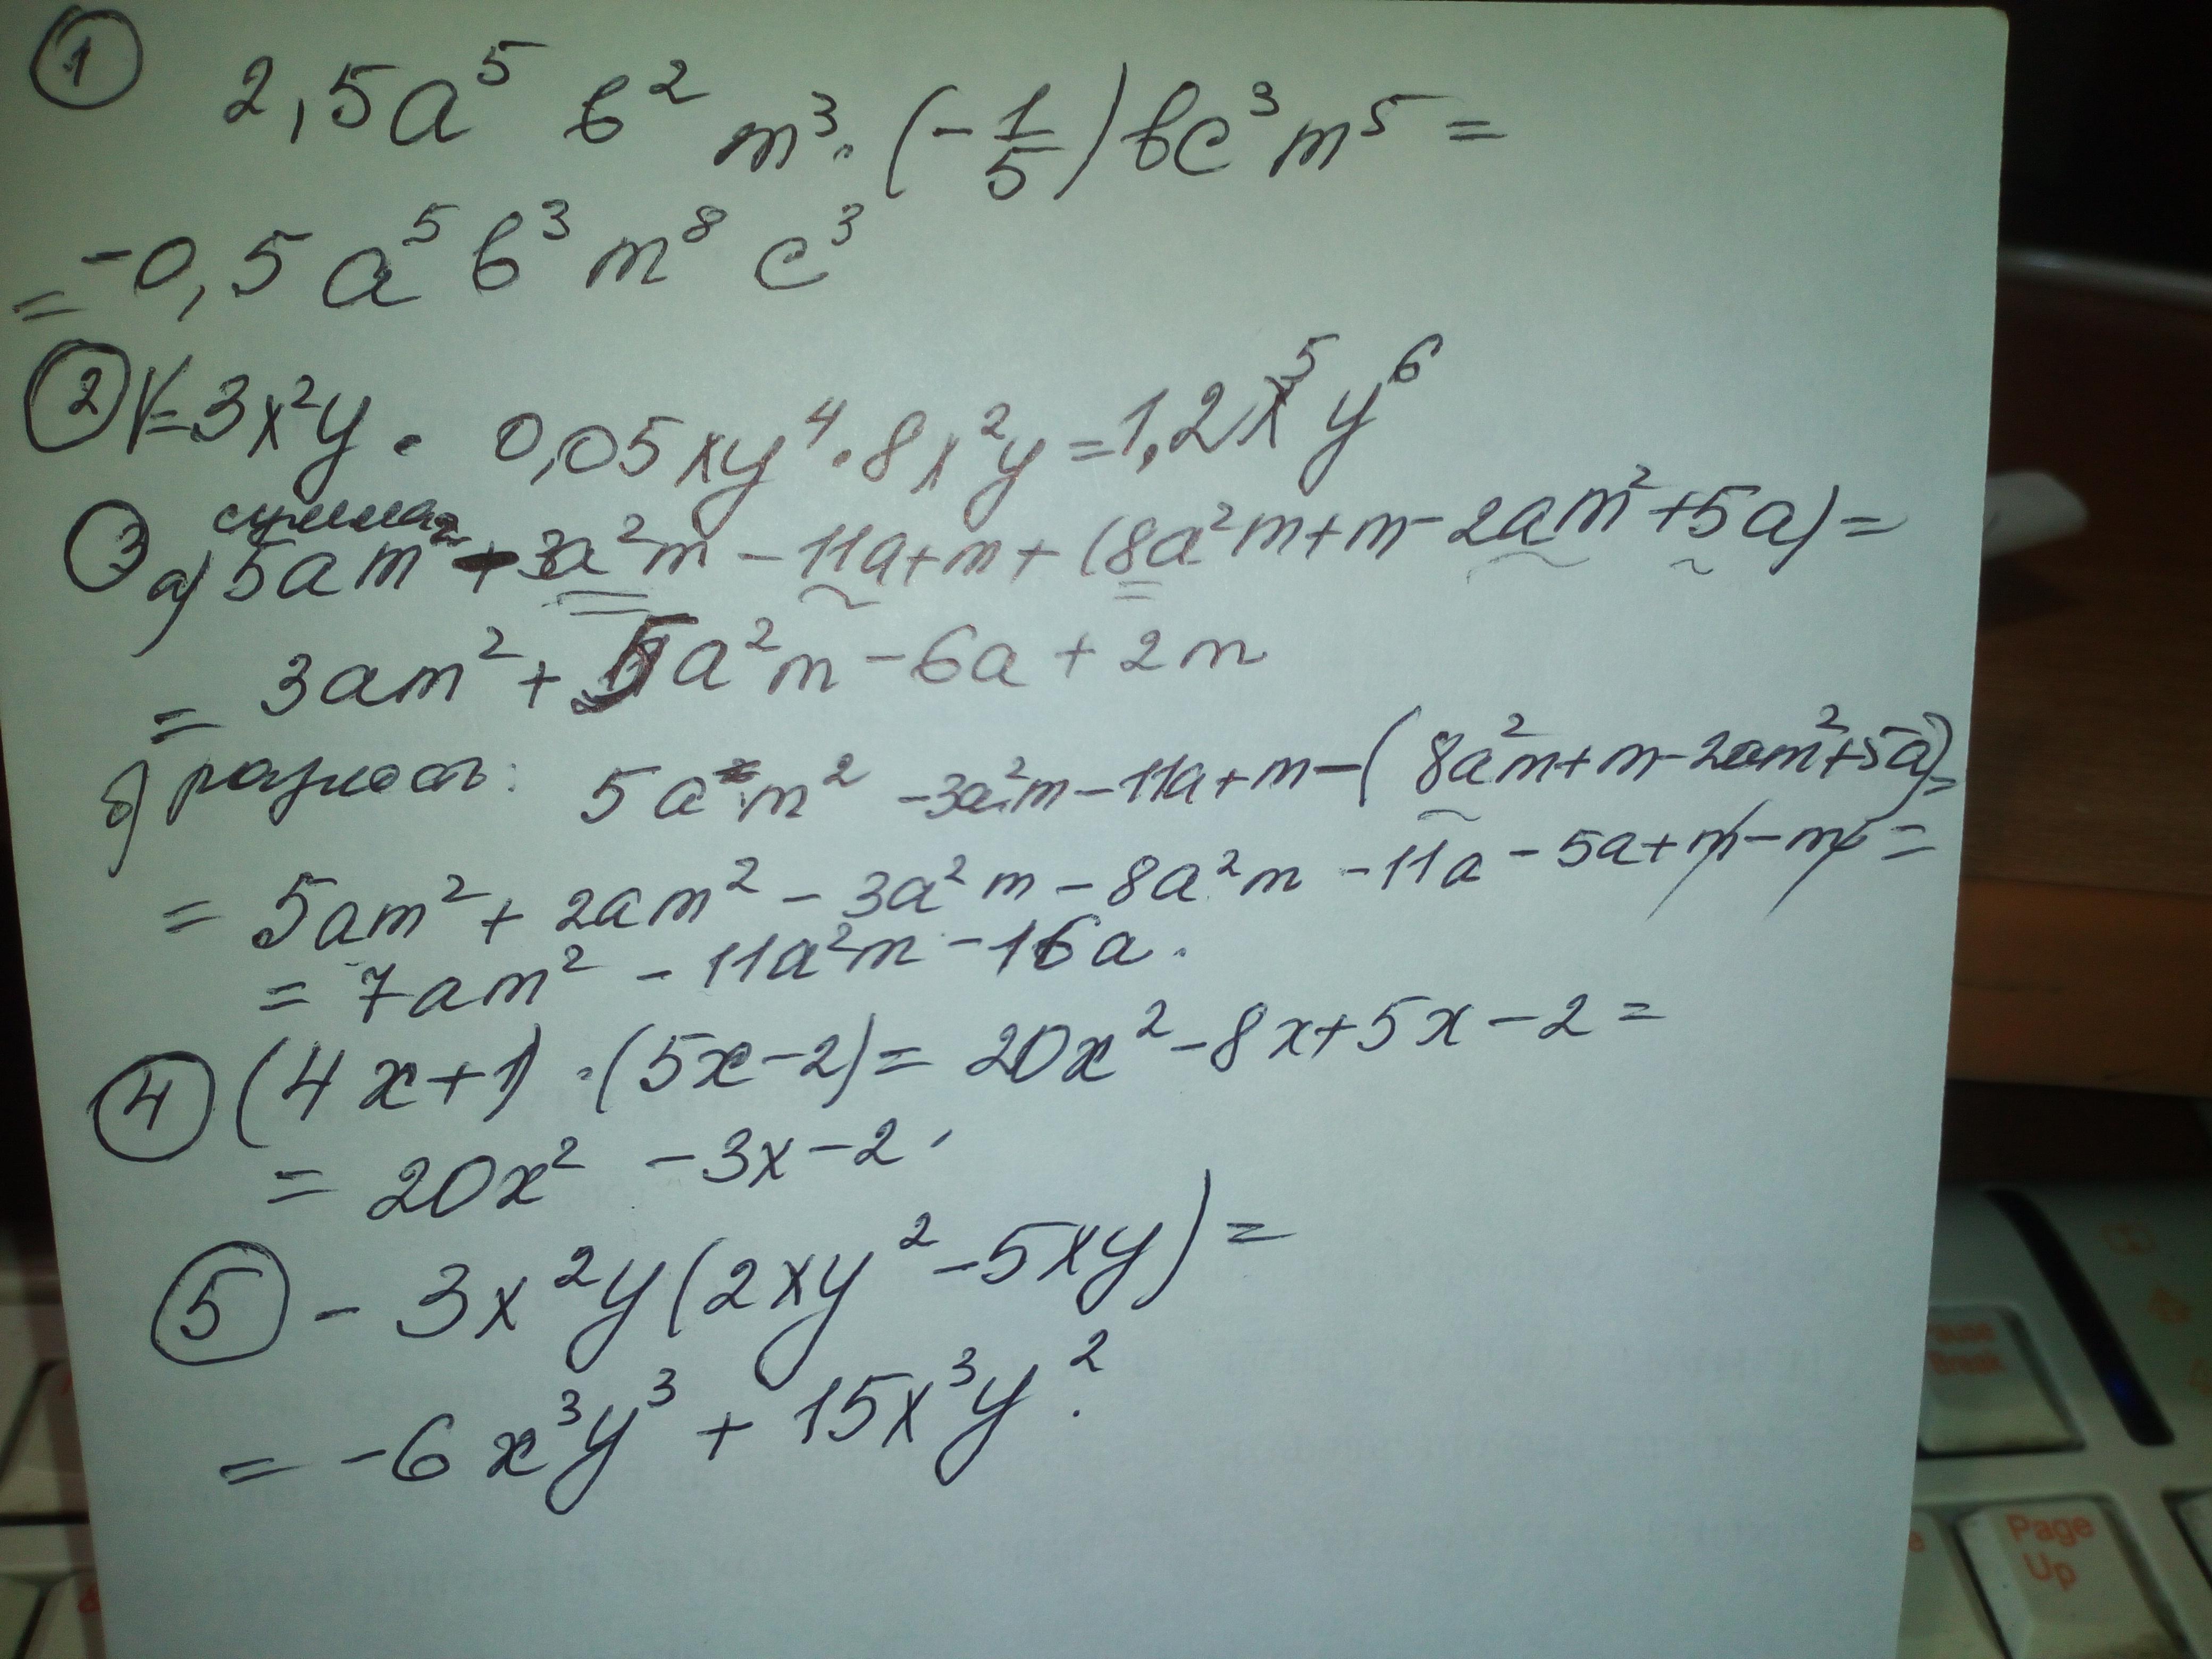 ① 2,5a⁵ b² m³·(-1/5)bc³m⁵ =
= -0,5 a⁵ b³ m⁸ c³
② V=3x²y · 0,05xy⁴·8x²y=1,2x⁵y⁶
③ сумма
а) 5am² - 3a²m - 11a+m+(8a²m+m-2am²+5a)=
= 3am² + 5a²m - 6a + 2m
б) разность: 5am² -3a²m-11a+m-(8a²m+m-2am²+5a)=
= 5am² + 2am² - 3a²m - 8a²m - 11a - 5a + m - m =
= 7am² - 11a²m - 16a.
④ (4x+1)·(5x-2)= 20x²-8x+5x-2=
= 20x² -3x-2.
⑤ - 3x²y(2xy²-5xy)=
= -6x³y³ + 15x³y².
Pause
Break
Page
Up